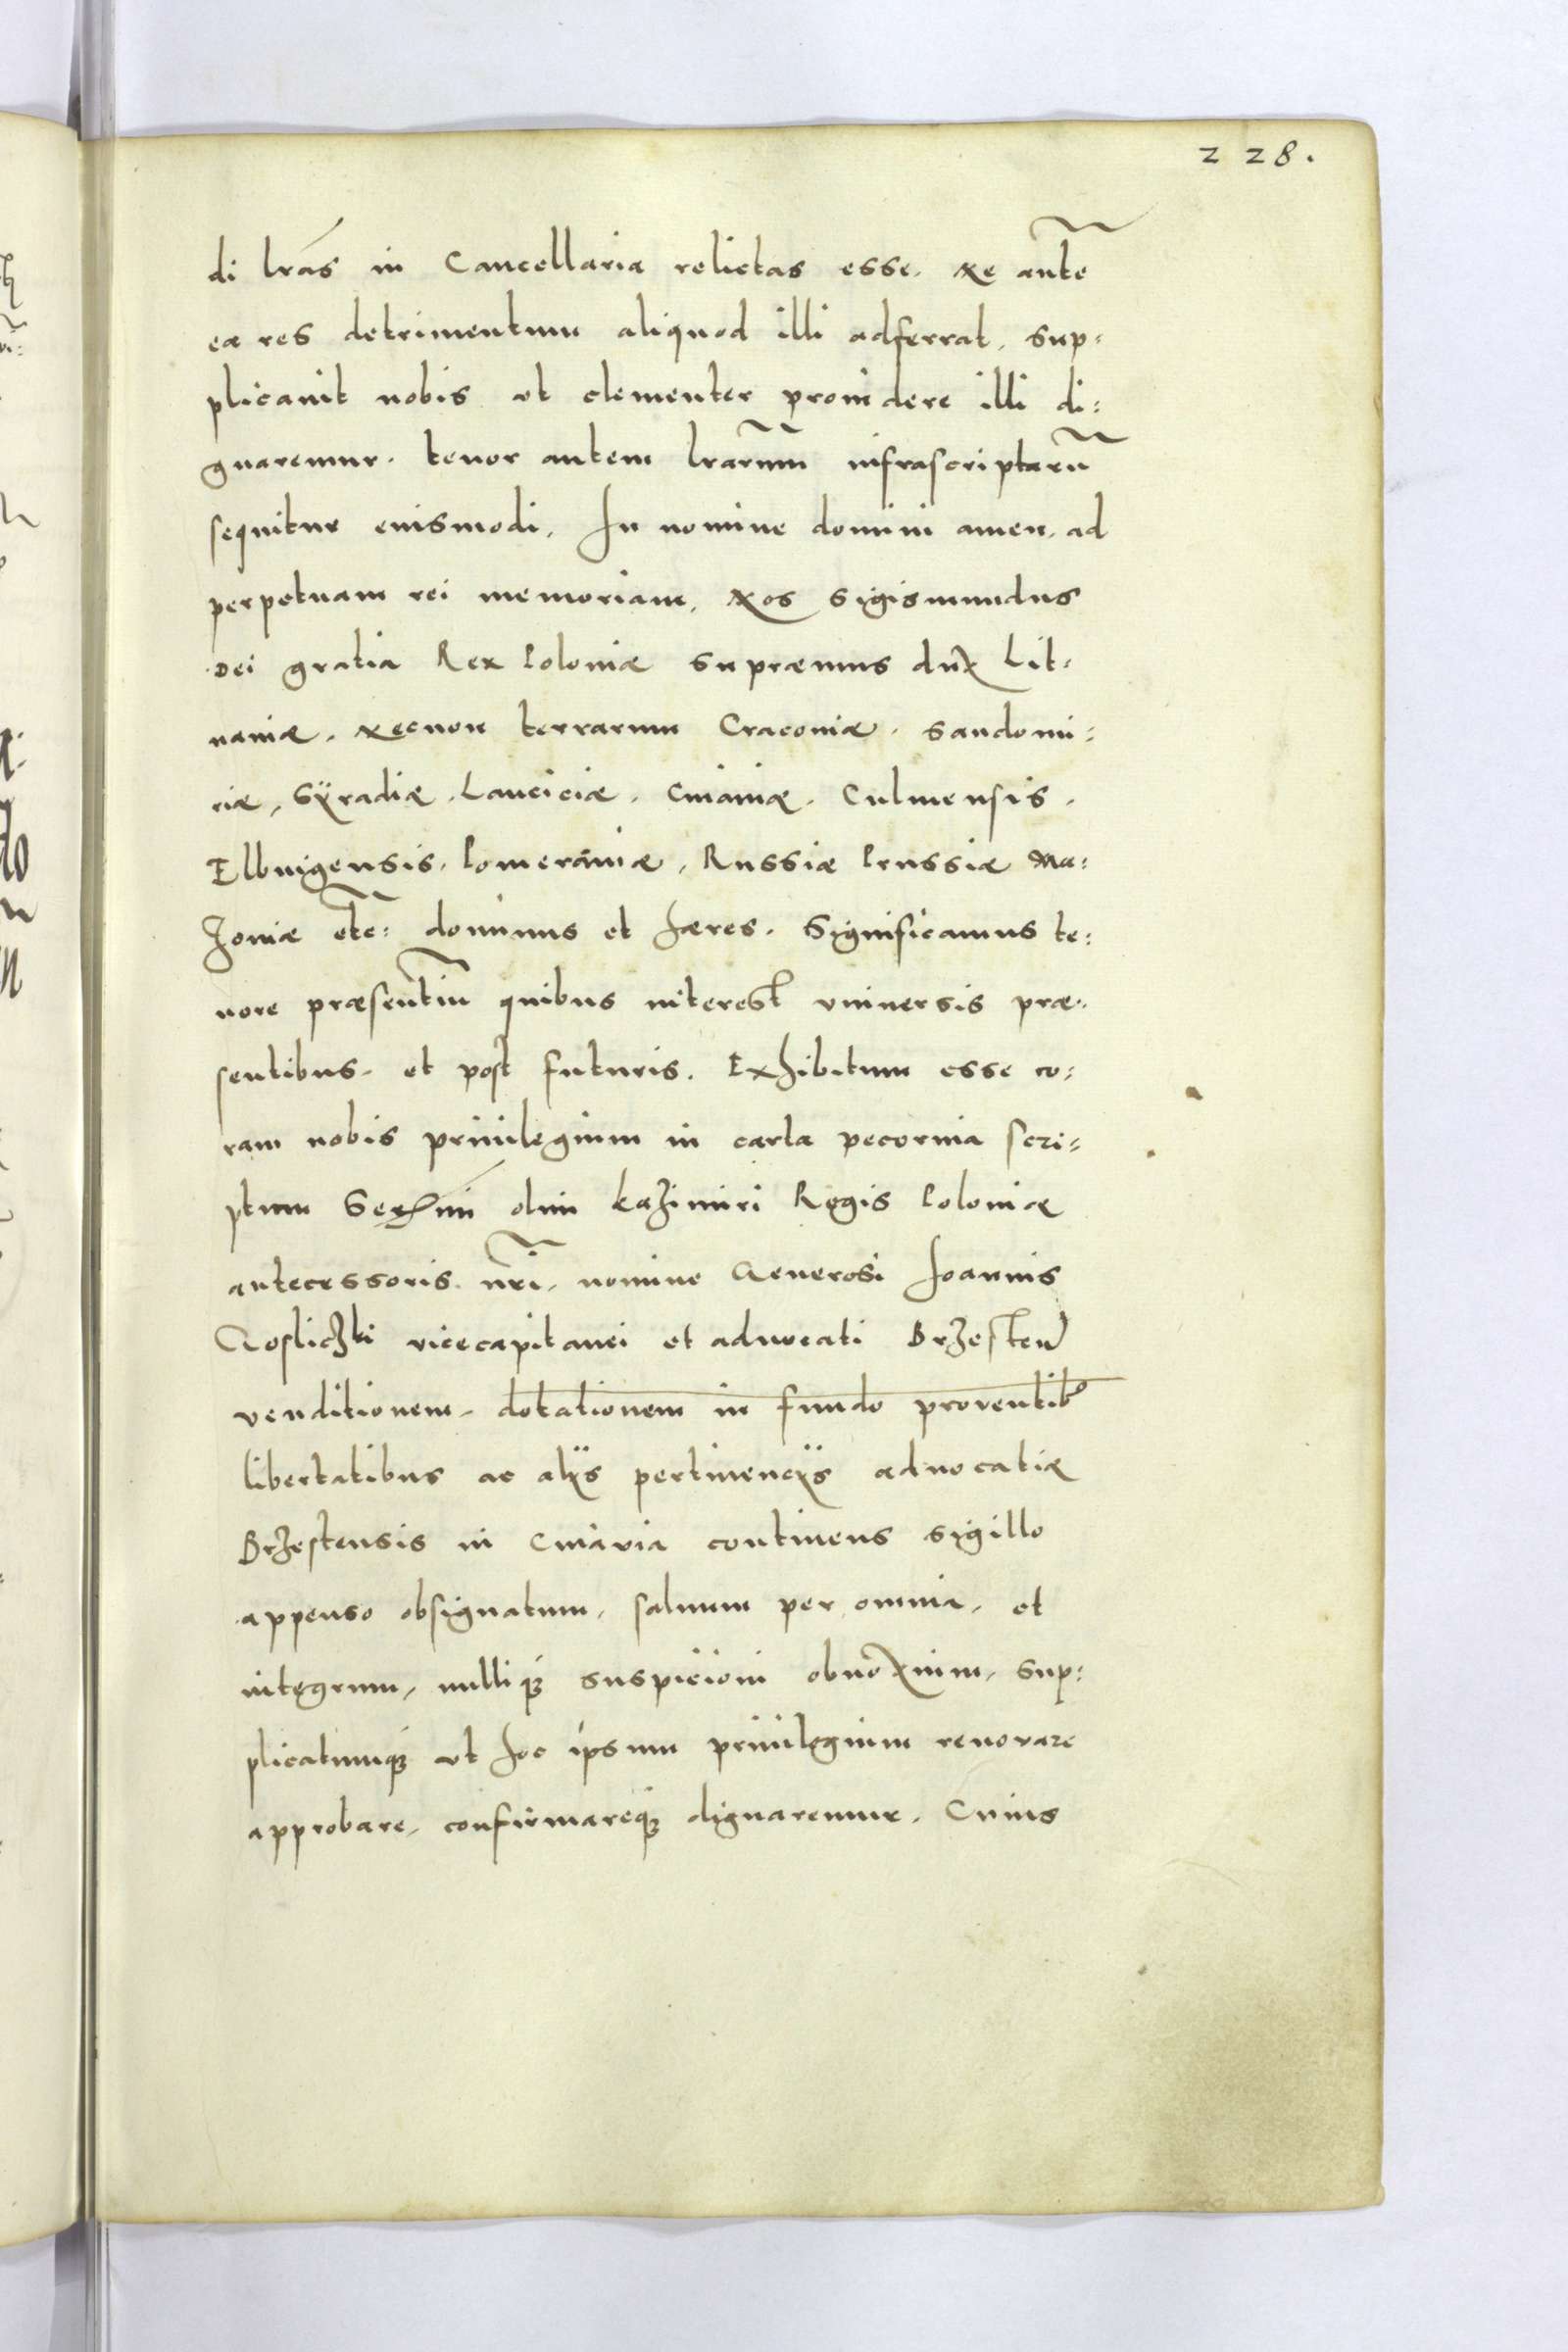 228.
di lrās in Cancellaria relictas esse. Ne aūte
ea res detrimentum aliquod illi adferrat, sup=
plicauit nobis ut clementer prouidere illi di=
gnaremur. tenor autem lrarum̄ infrascriptarū
sequitur eiusmodi. In nomine domini amen. ad
perpetuam rei memoriam, Nos Sigismundus
Dei gratia Rex Poloniæ supræmus dux Lit=
uaniæ. Necnon terrarum Cracouiæ. Sandomi=
riæ, Sÿradiæ. Lanciciæ. Cuiauiæ. Culmensis.
Elbuigensis. Pomeraniæ. Russiæ Prussiæ Ma=
zouiæ etc̄: dominus et hæres. Significamus te=
nore præsentiū quibus interest vniuersis præ=
sentibus. et post futuris. Exhibitum esse co=
ram nobis priuilegium in carta pecorina scri=
ptum Serḿi olim Kazimiri Regis Poloniæ
antecessoris nr̄i. nomine Generosi Joannis
Gosliczki vicecapitanei et aduocati Brzesten
venditionem. dotationem in fundo prouentib9
libertatibus ac alijs pertinencijs aduocatiæ
Brzestensis in Cuiavia continens sigillo
appenso obsignatum, saluum per omnia, et
integrum, nulliq3 suspicioni obnoxium, sup=
plicatumq3 ut hoc ipsum priuilegium renovare
approbare, confirmareq3 dignaremur. Cuius